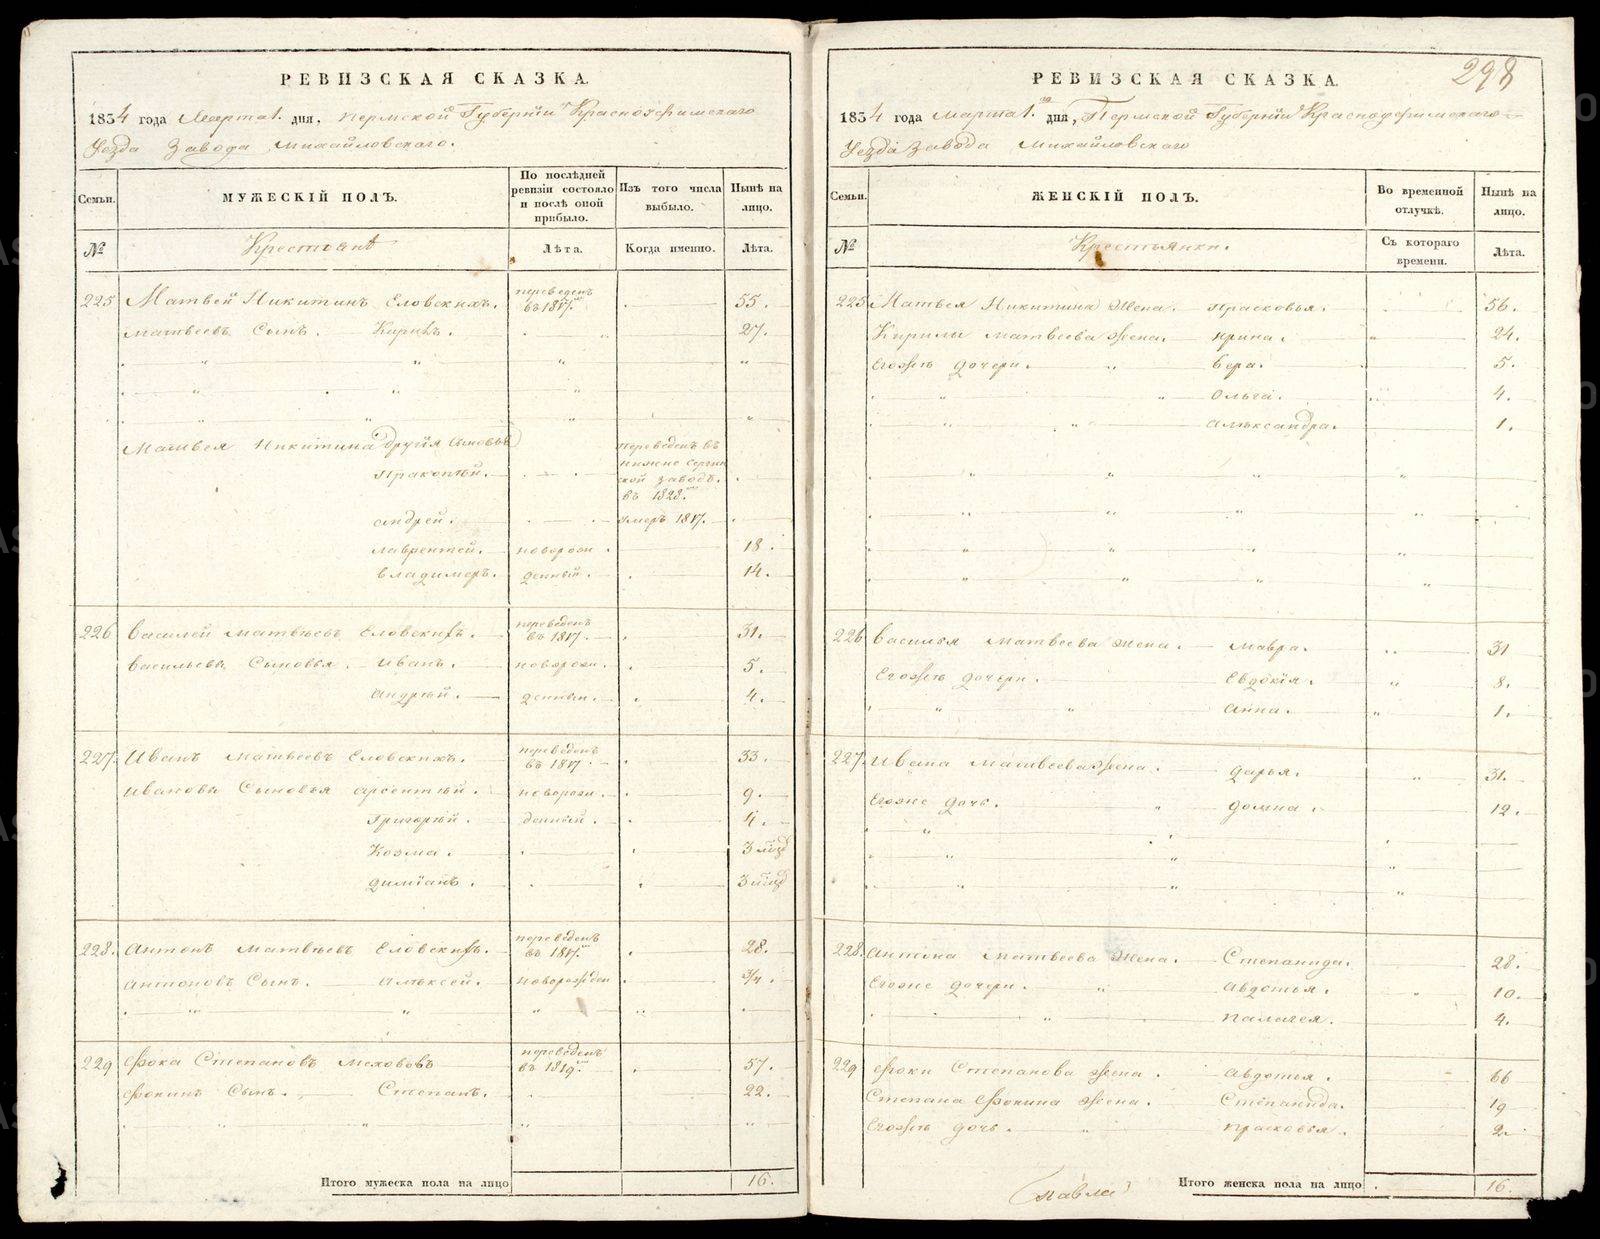 РЕВИЗСКАЯ СКАЗКА.
1834 года Марта 1. дня, Пермской Губернїи Красноуфимскаго
Уезда Завода Михайловскаго.
Семьи.
МУЖЕСКІЙ ПОЛЪ.
По послѣдней ревизіи состояло и послѣ оной прибыло.
Изъ того числа выбыло.
Нынѣ на лицо.
№
Крестьянѣ
Лѣта.
Когда именно.
Лѣта.
225 Матвей Никитинъ Еловскихъ. переведенъ въ 1817. 55.
Матвеевъ Сынъ. Кирилъ. 27.
Матвея Никитина другїя Сыновья
Пракопей. переведенъ въ нижне Сергинской заводъ. въ 1828.
Андрей. умеръ 1817.
Лаврентей. новорож 18.
Владимеръ. денный. 14.
226 Василей Матвеевъ Еловскихъ. переведенъ въ 1817. 31.
Васильевы Сыновья. Иванъ. новорож. 5.
Андрей. денныи. 4.
227. Иванъ Матвеевъ Еловскихъ. переведенъ въ 1817. 33.
Ивановы Сыновья Арсентей. новорож. 9.
Григорей. денный. 4.
Козма. 3 мѣс
Димїанъ. 3 мѣс
228. Антонъ Матвеевъ Еловскихъ. переведенъ въ 1817. 28.
Антоновъ Сынъ. Алексей. новорожден 3/4.
229 Фока Степановъ Меховъ переведенъ въ 1819. 57.
Фокинъ Сынъ. Степанъ. 22.
Итого мужеска пола на лицо 16.
298
РЕВИЗСКАЯ СКАЗКА.
1834 года Марта 1. дня, Пермской Губернїи Красноуфимскаго
Уезда Завода Михайловскаго
Семьи.
ЖЕНСКІЙ ПОЛЪ.
Во временной отлучкѣ.
Нынѣ на лицо.
№
Крестьянки.
Съ котораго времени.
Лѣта.
225 Матвея Никитина Жена. Прасковья. 56.
Кирилы Матвеева Жена. Ирина. 24.
Егожъ дочери. Вера. 5.
Ольга. 4.
Александра. 1.
226 Василья Матвеева Жена. Мавра. 31
Егожъ дочери. Евдокїя. 8.
Анна. 1.
227. Ивана Матвеева Жена. Дарья. 31.
Егоже дочь. Домна. 12.
228. Антона Матвеева Жена. Степанида. 28.
Егоже дочери. Авдотья. 10.
Палагея. 4.
229 Фоки Степанова Жена. Авдотья. 66
Степана Фокина Жена. Степанида. 19
Егожъ дочь. Прасковья. 2.
Павла
Итого женска пола на лицо 16.